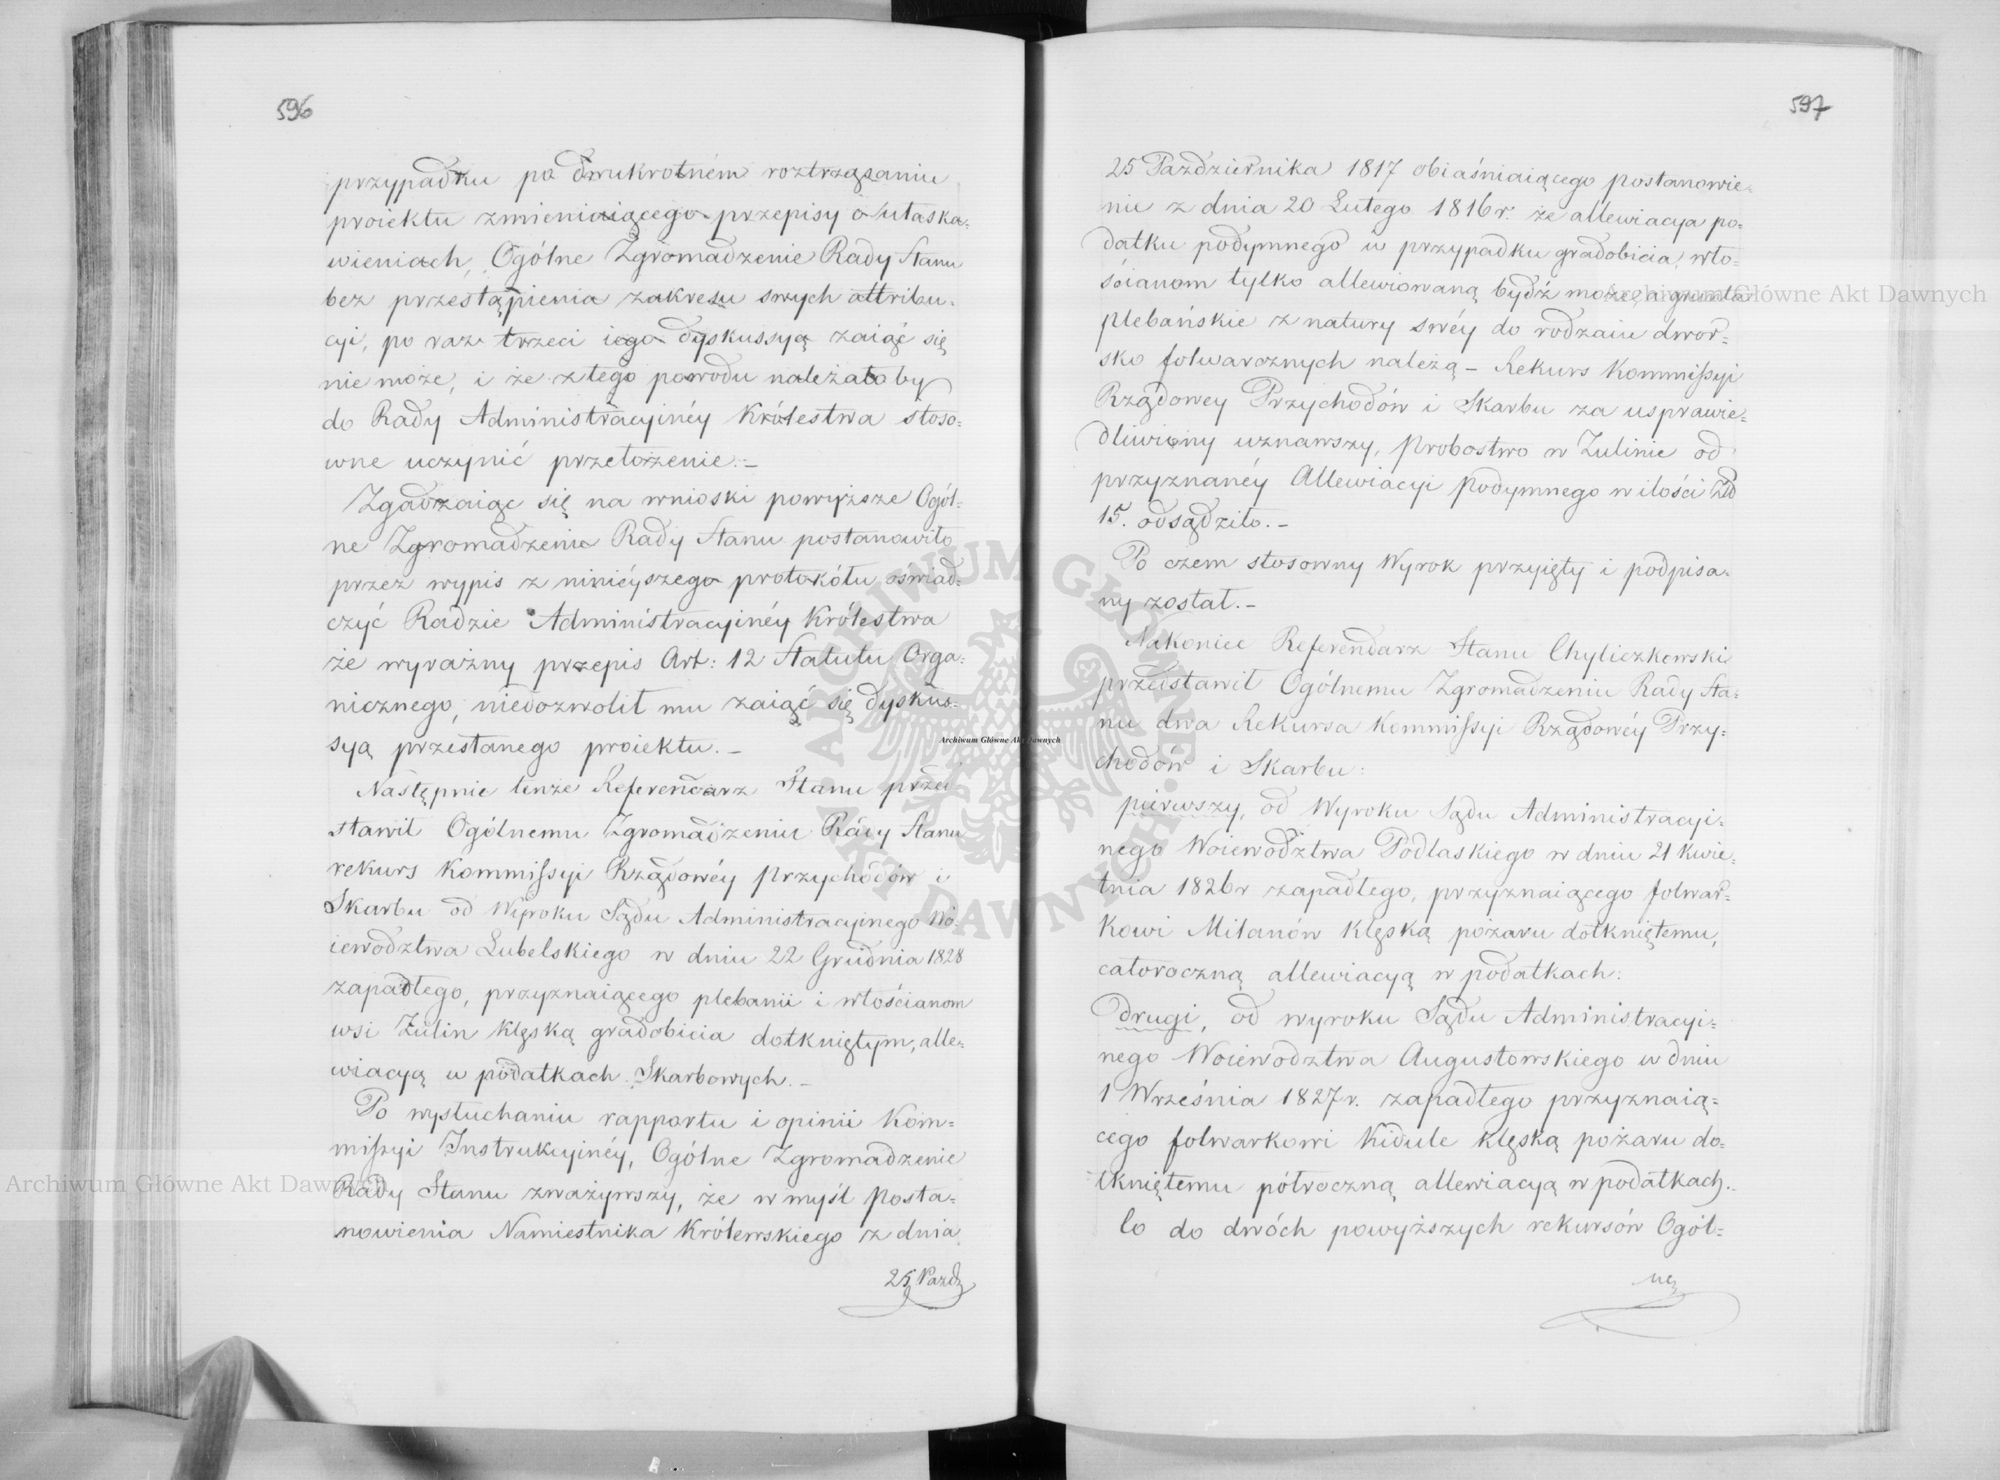 596
przypadku po dwukrotném roztrząsaniu
proiektu zmieniaiącego przepisy o ułaska-
wieniach, Ogólne Zgromadzenie Rady Stanu
bez przestąpienia zakresu swych attribu-
cyi, po raz trzeci iego dyskussyą zaiąć się
nie może, i że z tego powodu należałoby
do Rady Administracyinéy Królestwa stoso-
wne uczynić przełożenie.-
Zgadzaiąc się na wnioski powyższe Ogól-
ne Zgromadzenie Rady Stanu postanowiło
przez wypis z ninieyszego protokółu oswiad-
czyć Radzie Administracyinéy Królestwa
że wyraźny przepis Art: 12 Statutu Orga-
nicznego, niedozwolił mu zaiąć się dyskus-
syą przesłanego proiektu.-
Następnie tenże Referendarz Stanu przed-
stawił Ogólnemu Zgromadzeniu Rady Stanu
rekurs Kommissyi Rządowéy Przychodów i
Skarbu od Wyroku Sądu Administracyinego Wo-
iewodztwa Lubelskiego w dniu 22 Grudnia 1828
zapadłego, przyznaiącego plebanii i włościanom
wsi Żulin klęską gradobicia dotkniętym, alle-
wiacyą w podatkach Skarbowych.-
Po wysłuchaniu rapportu i opinii Kom-
missyi Instrukcyinéy, Ogólne Zgromadzenie
Rady Stanu zważywszy, że w myśl Posta-
nowienia Namiestnika Królewskiego z dnia
25 Pazdz
597
25 Pazdziernika 1817 obiaśniaiącego postanowie-
nie z dnia 20 Lutego 1816 r. że allewiacya po-
datku podymnego w przypadku gradobicia, wło-
ścianom tylko allewiowaną bydź może, a grunta
plebańskie z natury swéy do rodzaiu dwor-
sko folwarcznych należą - Rekurs Kommissyi
Rządowey Przychodów i Skarbu za usprawie-
dliwiony uznawszy, Probostwo w Zulinie od
przyznanéy Allewiacyi Podymnego w ilości Złp
15. odsądziło.-
Po czem stosowny Wyrok przyięty i podpisa-
ny został.-
Nakoniec Referendarz Stanu Chyliczkowski
przedstawił Ogólnemu Zgromadzeniu Rady Sta-
nu dwa Rekursa Kommissyi Rządowéy Przy-
chodów i Skarbu:
pierwszy, od Wyroku Sądu Administracyi-
nego Woiewodztwa Podlaskiego w dniu 21 Kwie-
tnia 1826 r zapadłego, przyznaiącego folwar-
kowi Milanów klęską pożaru dotkniętemu,
całoroczną allewiacyą w podatkach:
drugi, od wyroku Sądu Administracyi-
nego Woiewodztwa Augustowskiego w dniu
1 Września 1827 r. zapadłego przyznaią-
cego folwarkowi Kidule klęską pożaru do-
tkniętemu półroczną allewiacyą w podatkach.-
Co do dwóch powyższych rekursów Ogól-
ne
Archiwum Główne Akt Dawnych
Archiwum Główne Akt Dawnych
Archiwum Główne Akt Dawnych
ARCHIWUM GŁÓWNE AKT DAWNYCH